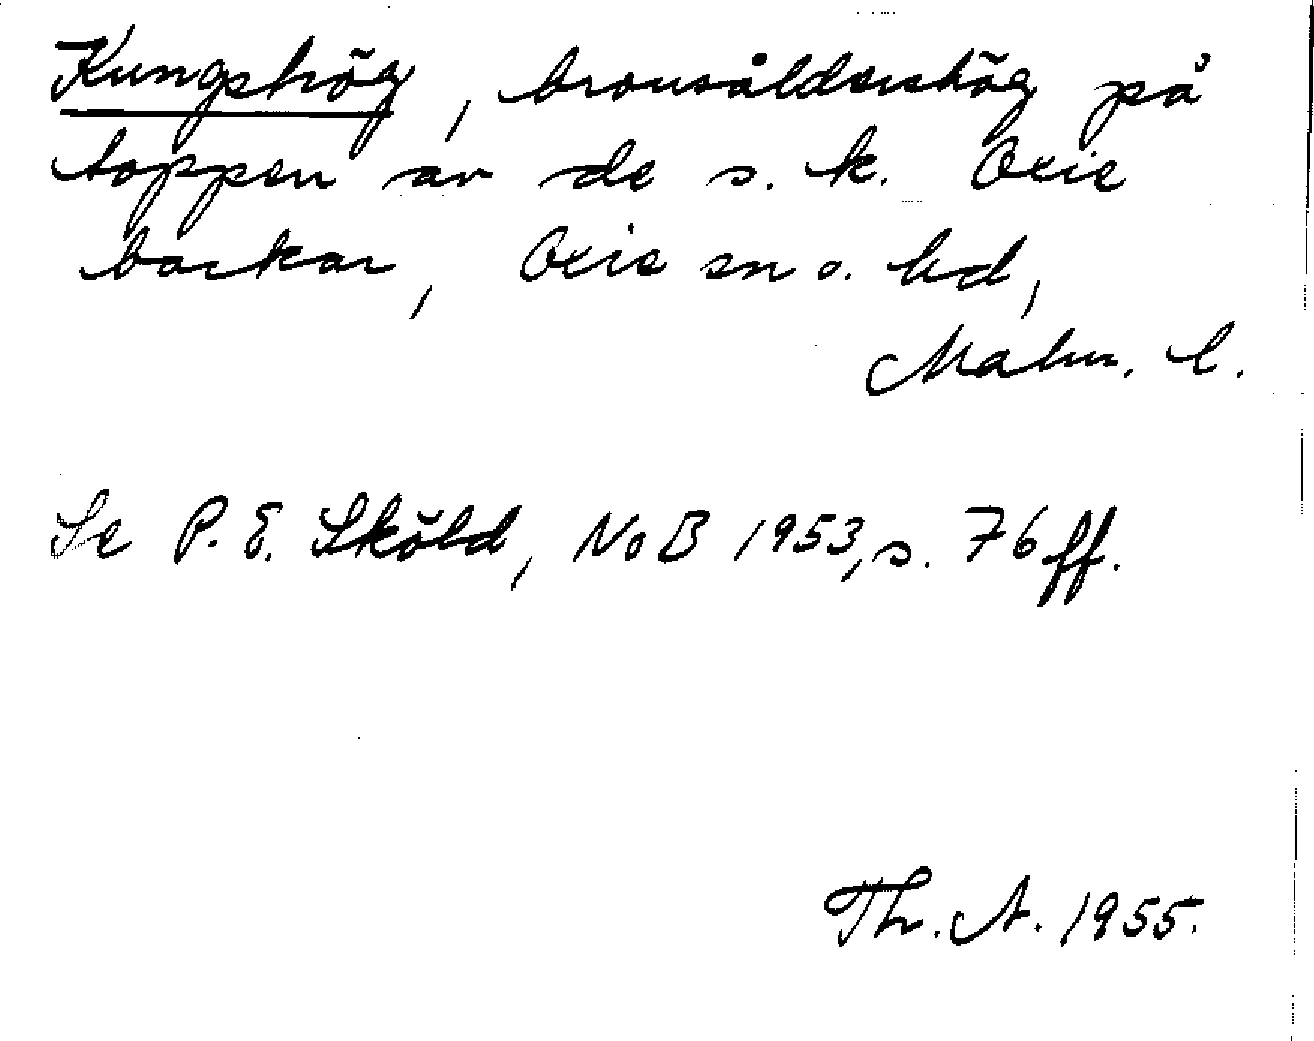 Kungshög, bronsåldershög på
toppen av de s.k. Oxie
backar, Oxie sn o. hd,
Malm. l.
Se P.E. Sköld, NoB 1953, s. 76 ff.
Th. A. 1955.